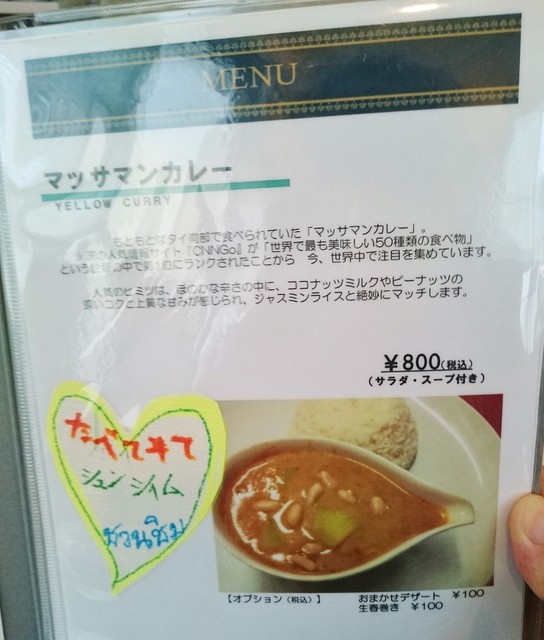 MENU
マッサマンカレー
YELLOW CURRY
もともとはタイ南部で食べられていた「マッサマンカレー」。
米国の人気情報サイト『CNNGo』が「世界で最も美味しい50種類の食べ物」
という企画の中で第1位にランクされたことから 今、世界中で注目を集めています。
人気のヒミツは、ほのかな辛さの中に、ココナッツミルクやピーナッツの
濃いコクと上質な甘みが感じられ、ジャスミンライスと絶妙にマッチします。
￥800(税込)
(サラダ・スープ付き)
たべてみて
シュン シイム
ชวนชิม
【オプション（税込）】 おまかせデザート ￥100
生春巻き ￥100